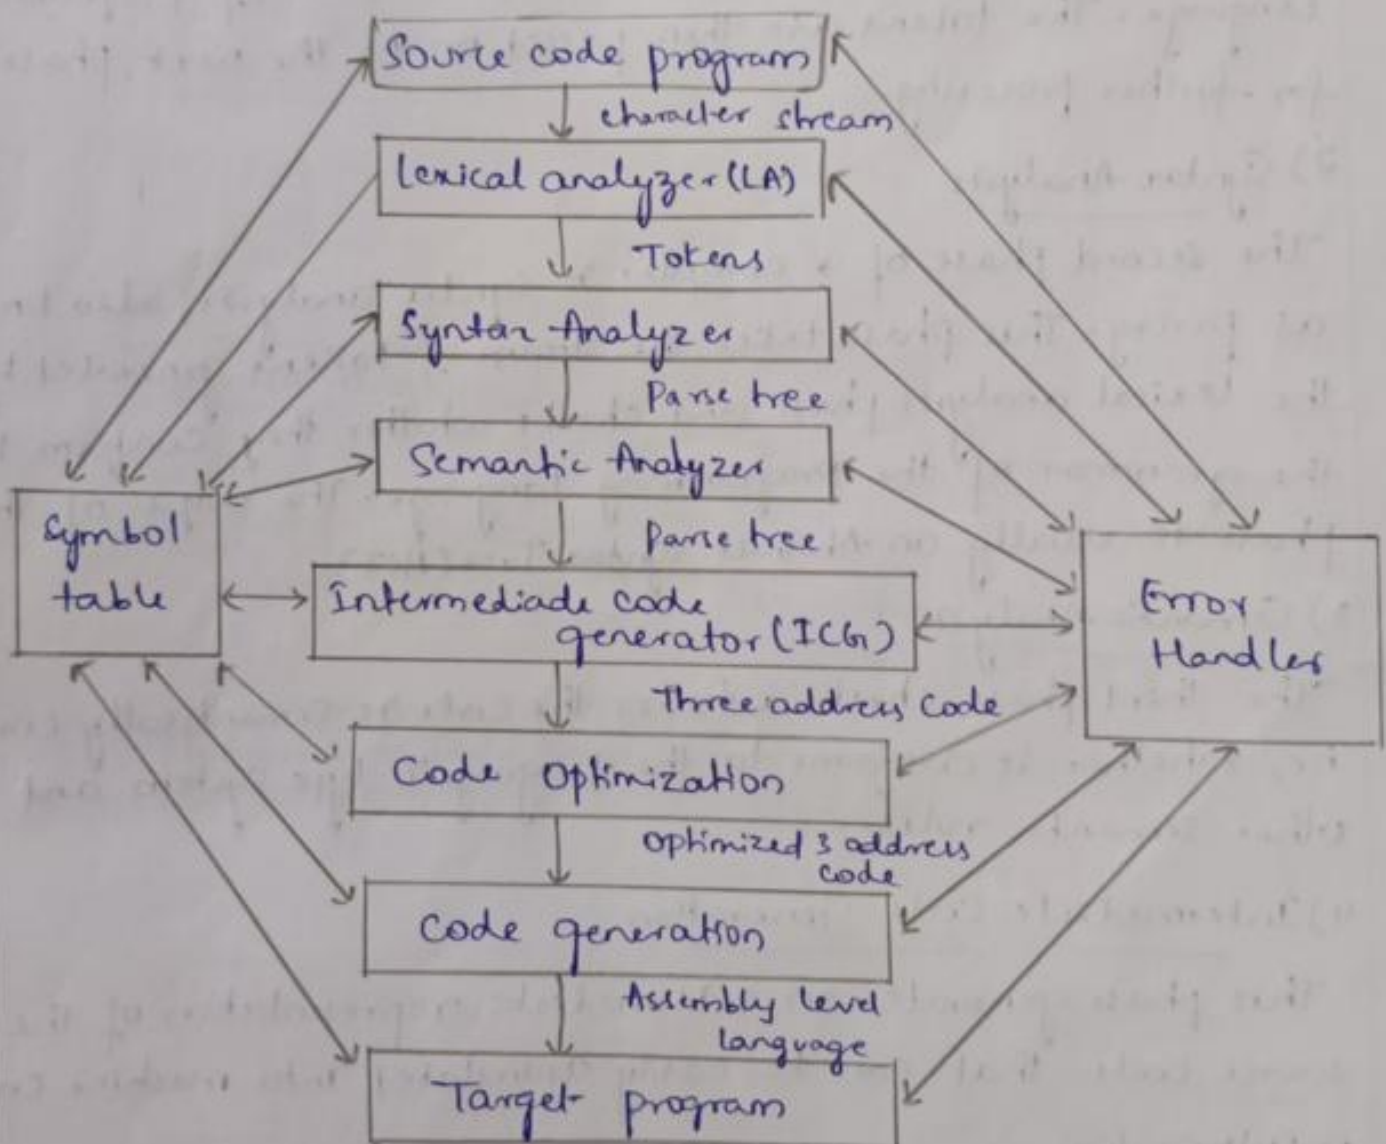 Source code program
character stream
Lexical analyzer (LA)
Tokens
Syntax Analyzer
Parse tree
Semantic Analyzer
Parse tree
Symbol
table
Intermediade code
generator (ICG)
Error
Handler
Three address code
Code Optimization
Optimized 3 address
code
Code generation
Assembly level
language
Target program